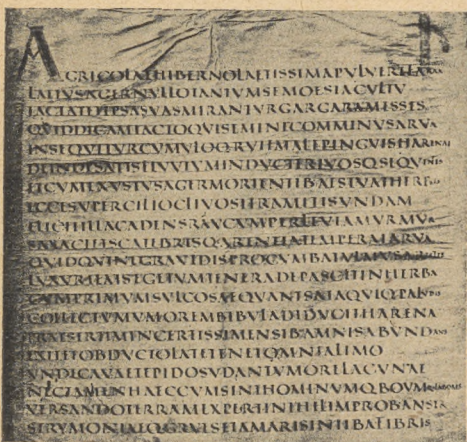 AGRICOLAEHIBERNOLAETISSIMAPVLVEREFARRA
LAETVSAGERNVLLOTANTVMSEMOESIACVLTV
IACTATETIPSASVASMIRANTVRGARGARAMESSES
QVIDDICAMIACTOQVISEMINECOMMINVSARVA
INSEQVITVRCVMVLOSQ·RVITMALEPINGVISHARENAE
DEINDESATISFLVVIVMINDVCITRIVOSQ·SEQVENTIS
ETCVMEXVSTVSAGERMORIENTIBAESTVATHERBIS
ECCESVPERCILIOCLIVOSITRAMITISVNDAM
ELICITILLACADENSRAVCVMPERLEVIAMVRMVR
SAXACIETSCATEBRISQ·ARENTIATEMPERATARVA
QVIDQVINEGRAVIDISPROCVMBATCVLMVSARISTIS
LVXVRIEMSEGETVMTENERADEPASCITINHERBA
CVMPRIMVMSVLCOSAEQVANTSATAQVIQ·PALVDIS
COLLECTVMVMOREMBIBVLADEDVCITHARENA
PRAESERTIMINCERTISSIMENSIBAMNISABVNDANS
EXITETOBDVCTOLATETENETOMNIALIMO
VNDECAVAETEPIDOSVDANTVMORELACVNAE
NECTAMENHAECCVMSINTHOMINVMQ·BOVMQ·LABORES
VERSANDOTERRAMEXPERTINIHILIMPROBVSANSER
STRYMONIAEQ·GRVESETAMARISINTIBAFIBRIS